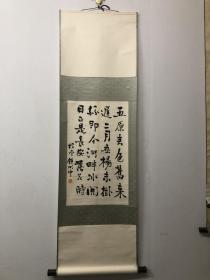 五原春色舊來
遲二月垂楊未掛
絲即今河畔冰開
日正是長安落花時